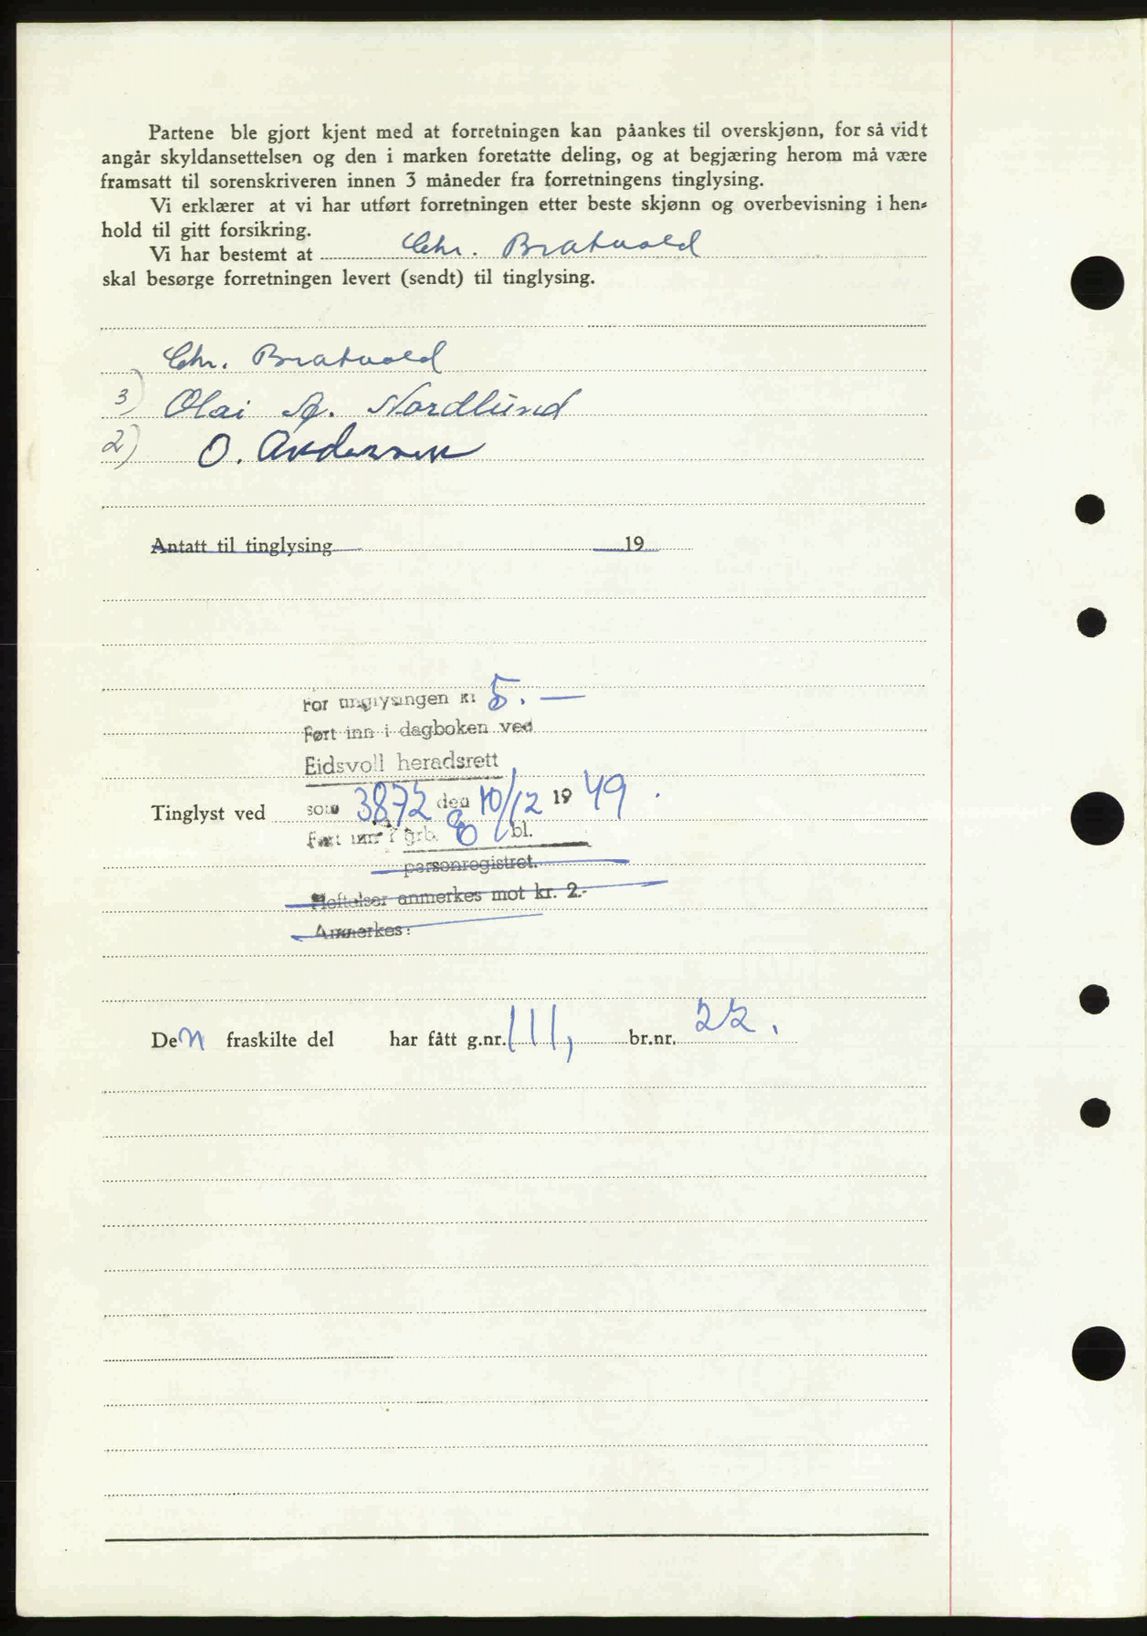 Partene ble gjort kjent med at forretningen kan påankes til overskjønn, for så vidt
angår skyldansettelsen og den i marken foretatte deling, og at begjæring herom må være
framsatt til sorenskriveren innen 3 måneder fra forretningens tinglysing.
Vi erklærer at vi har utført forretningen etter beste skjønn og overbevisning i hen-
hold til gitt forsikring.
Vi har bestemt at Chr. Bratvold
skal besørge forretningen levert (sendt) til tinglysing.
Chr. Bratvold
3) Olai A. Nordlund
2) O. Andersen
Antatt til tinglysing 19
For tinglysingen kr 5. —
Ført inn i dagboken ved
Eidsvoll heradsrett
Tinglyst ved som 3872 den 10/12 19 49.
Ført inn i grb. bl.
personregistret.
Heftelser anmerkes mot kr. 2.-
Anmerkes:
Den fraskilte del har fått g.nr. 111, br.nr. 22.